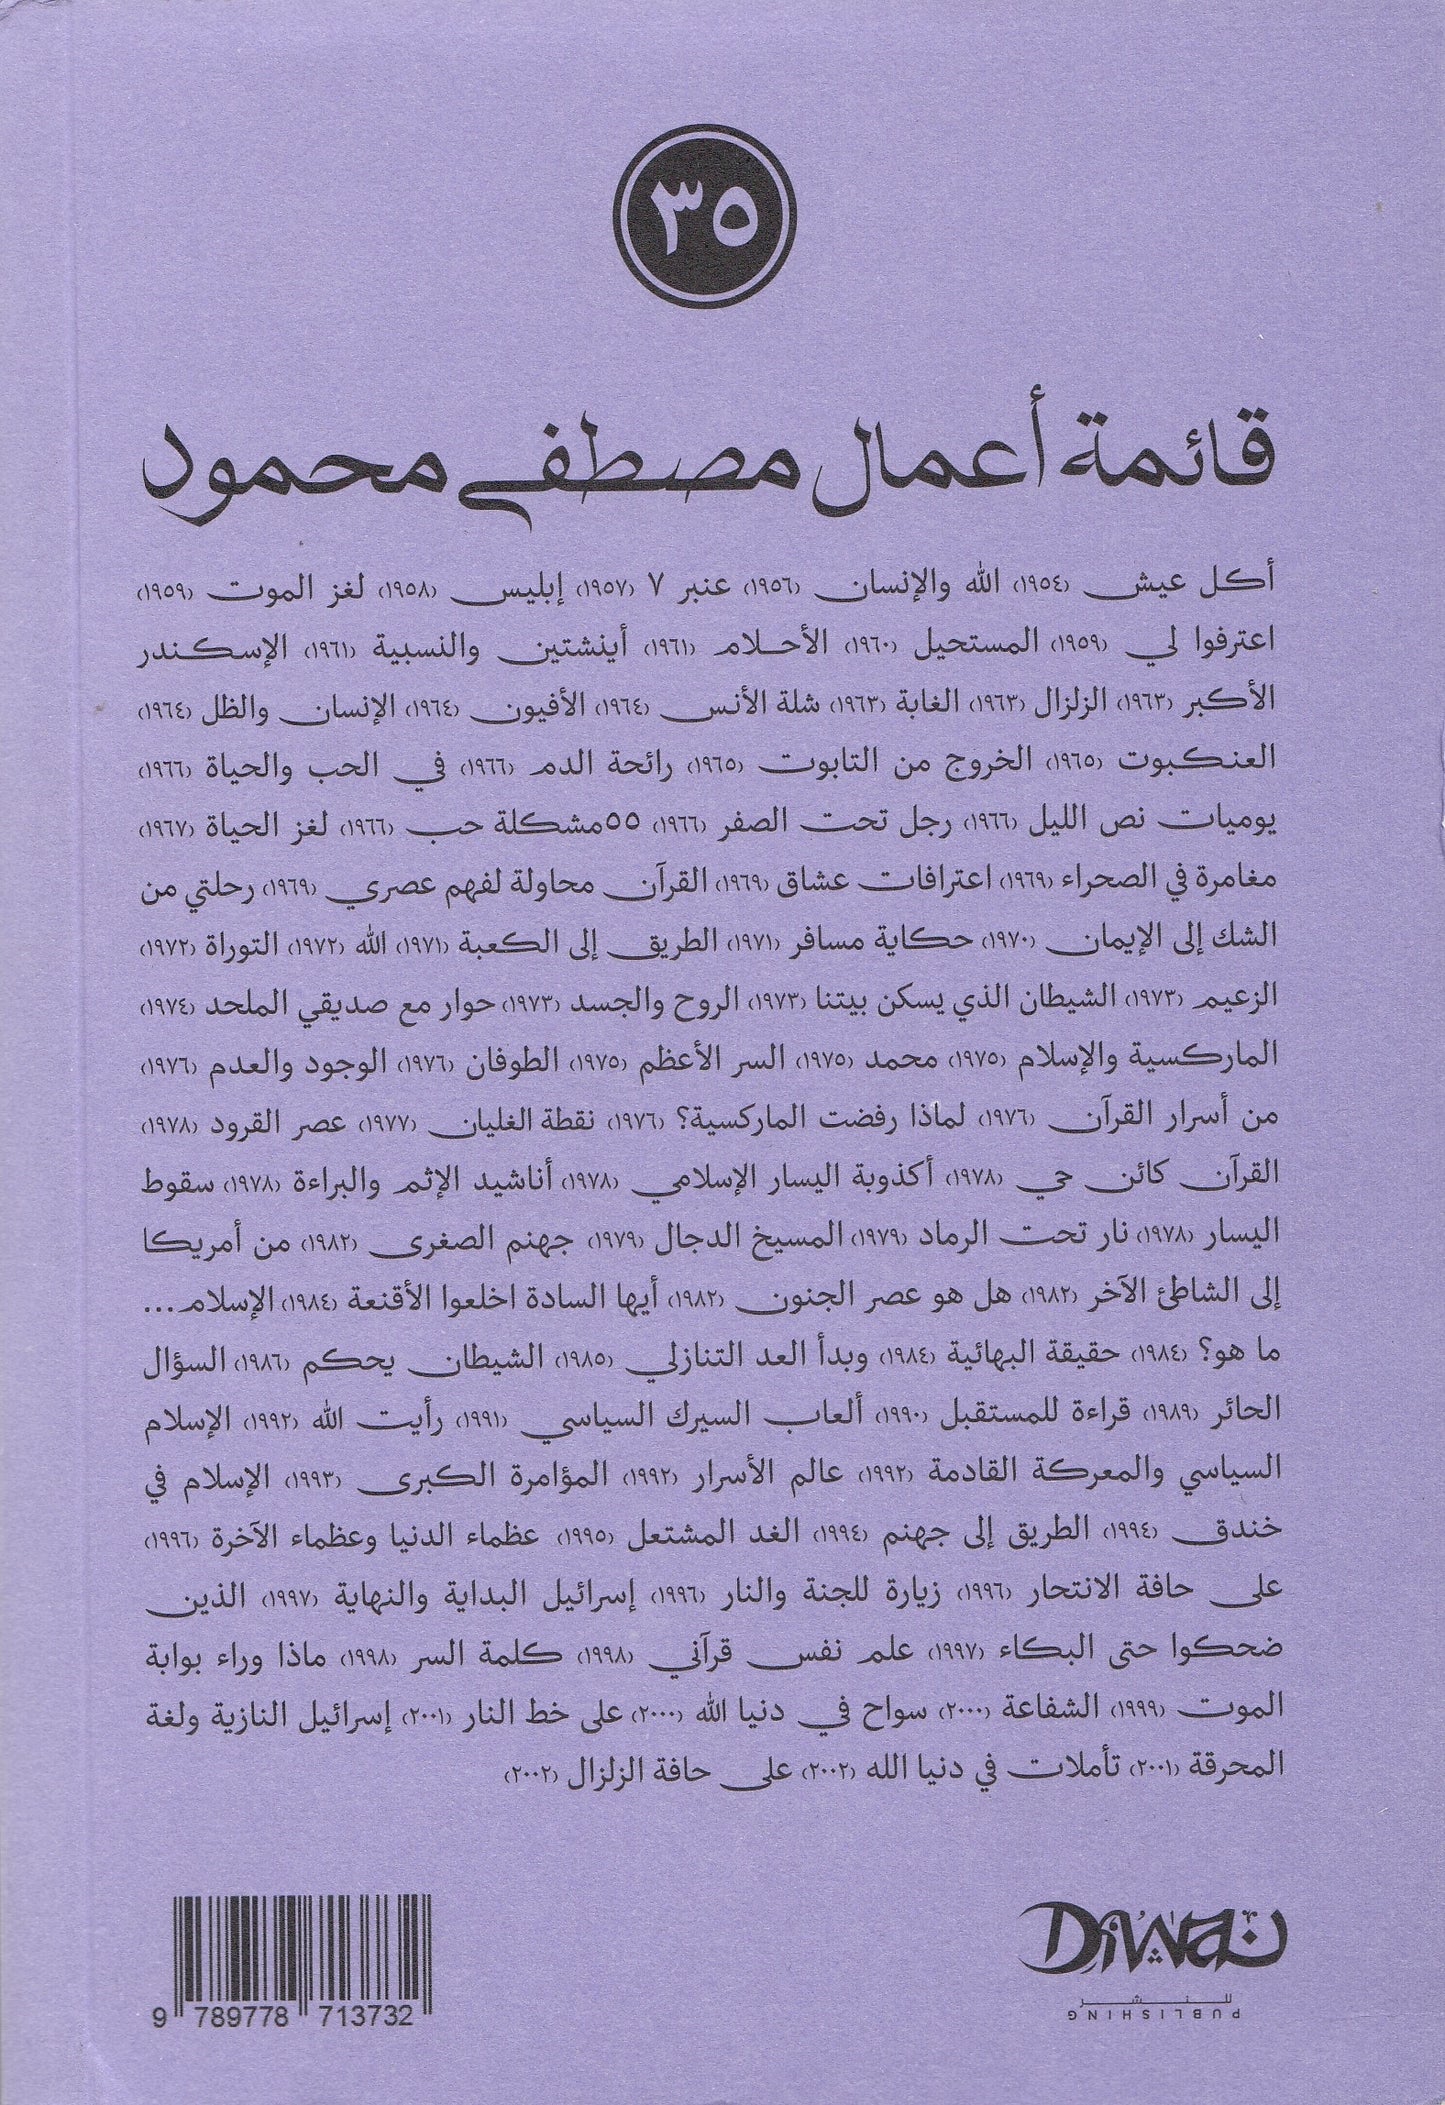 ٣٥
قائمة أعمال مصطفى محمود
أكل عيش (١٩٥٤) الله والإنسان (١٩٥٦) عنبر ٧ (١٩٥٧) إبليس (١٩٥٨) لغز الموت (١٩٥٩)
اعترفوا لي (١٩٥٩) المستحيل (١٩٦٠) الأحلام (١٩٦١) أينشتين والنسبية (١٩٦١) الإسكندر
الأكبر (١٩٦٣) الزلزال (١٩٦٣) الغابة (١٩٦٣) شلة الأنس (١٩٦٤) الأفيون (١٩٦٤) الإنسان والظل (١٩٦٤)
العنكبوت (١٩٦٥) الخروج من التابوت (١٩٦٥) رائحة الدم (١٩٦٦) في الحب والحياة (١٩٦٦)
يوميات نص الليل (١٩٦٦) رجل تحت الصفر (١٩٦٦) ٥٥مشكلة حب (١٩٦٦) لغز الحياة (١٩٦٧)
مغامرة في الصحراء (١٩٦٩) اعترافات عشاق (١٩٦٩) القرآن محاولة لفهم عصري (١٩٦٩) رحلتي من
الشك إلى الإيمان (١٩٧٠) حكاية مسافر (١٩٧١) الطريق إلى الكعبة (١٩٧١) الله (١٩٧٢) التوراة (١٩٧٢)
الزعيم (١٩٧٣) الشيطان الذي يسكن بيتنا (١٩٧٣) الروح والجسد (١٩٧٣) حوار مع صديقي الملحد (١٩٧٤)
الماركسية والإسلام (١٩٧٥) محمد (١٩٧٥) السر الأعظم (١٩٧٥) الطوفان (١٩٧٦) الوجود والعدم (١٩٧٦)
من أسرار القرآن (١٩٧٦) لماذا رفضت الماركسية؟ (١٩٧٦) نقطة الغليان (١٩٧٧) عصر القرود (١٩٧٨)
القرآن كائن حي (١٩٧٨) أكذوبة اليسار الإسلامي (١٩٧٨) أناشيد الإثم والبراءة (١٩٧٨) سقوط
اليسار (١٩٧٨) نار تحت الرماد (١٩٧٩) المسيخ الدجال (١٩٧٩) جهنم الصغرى (١٩٨٢) من أمريكا
إلى الشاطئ الآخر (١٩٨٢) هل هو عصر الجنون (١٩٨٢) أيها السادة اخلعوا الأقنعة (١٩٨٤) الإسلام...
ما هو؟ (١٩٨٤) حقيقة البهائية (١٩٨٤) وبدأ العد التنازلي (١٩٨٥) الشيطان يحكم (١٩٨٦) السؤال
الحائر (١٩٨٩) قراءة للمستقبل (١٩٩٠) ألعاب السيرك السياسي (١٩٩١) رأيت الله (١٩٩٢) الإسلام
السياسي والمعركة القادمة (١٩٩٢) عالم الأسرار (١٩٩٢) المؤامرة الكبرى (١٩٩٣) الإسلام في
خندق (١٩٩٤) الطريق إلى جهنم (١٩٩٤) الغد المشتعل (١٩٩٥) عظماء الدنيا وعظماء الآخرة (١٩٩٦)
على حافة الانتحار (١٩٩٦) زيارة للجنة والنار (١٩٩٦) إسرائيل البداية والنهاية (١٩٩٧) الذين
ضحكوا حتى البكاء (١٩٩٧) علم نفس قرآني (١٩٩٨) كلمة السر (١٩٩٨) ماذا وراء بوابة
الموت (١٩٩٩) الشفاعة (٢٠٠٠) سواح في دنيا الله (٢٠٠٠) على خط النار (٢٠٠١) إسرائيل النازية ولغة
المحرقة (٢٠٠١) تأملات في دنيا الله (٢٠٠٢) على حافة الزلزال (٢٠٠٢)
DIWAN
للنشر
PUBLISHING
9 789778 713732